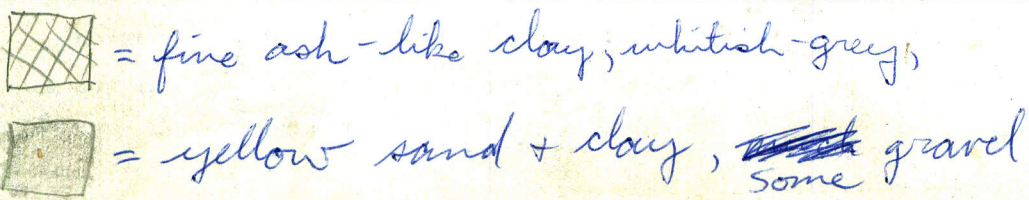 = fine ash-like clay, whitish-grey,
= yellow sand + clay, some gravel